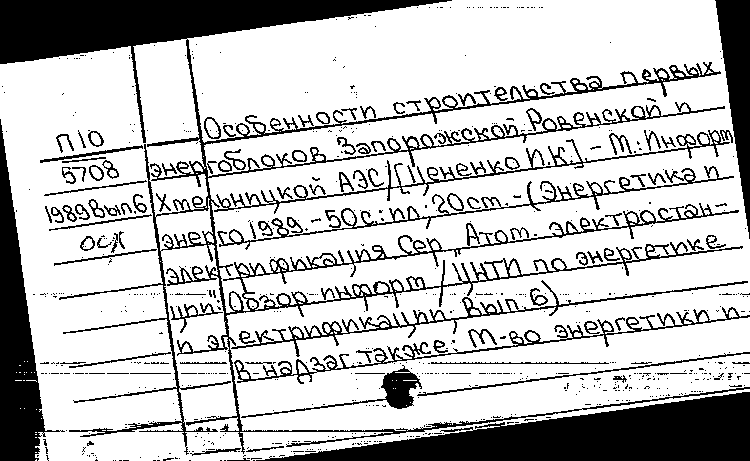 П10
5708
1989вып.6
осх
Особенности строительства первых
энергоблоков Запорожской, Ровенской и
Хмельницкой АЭС/[Цененко И.К.].-М.:Информ
энерго, 1989.-50с.:ил.; 20см.-(Энергетика и
электрификация Сер. "Атом. электростан-
ции": Обзор. информ / ЦНТИ по энергетике
и электрификации; Вып. 6).
В надзаг. также: М-во энергетики и